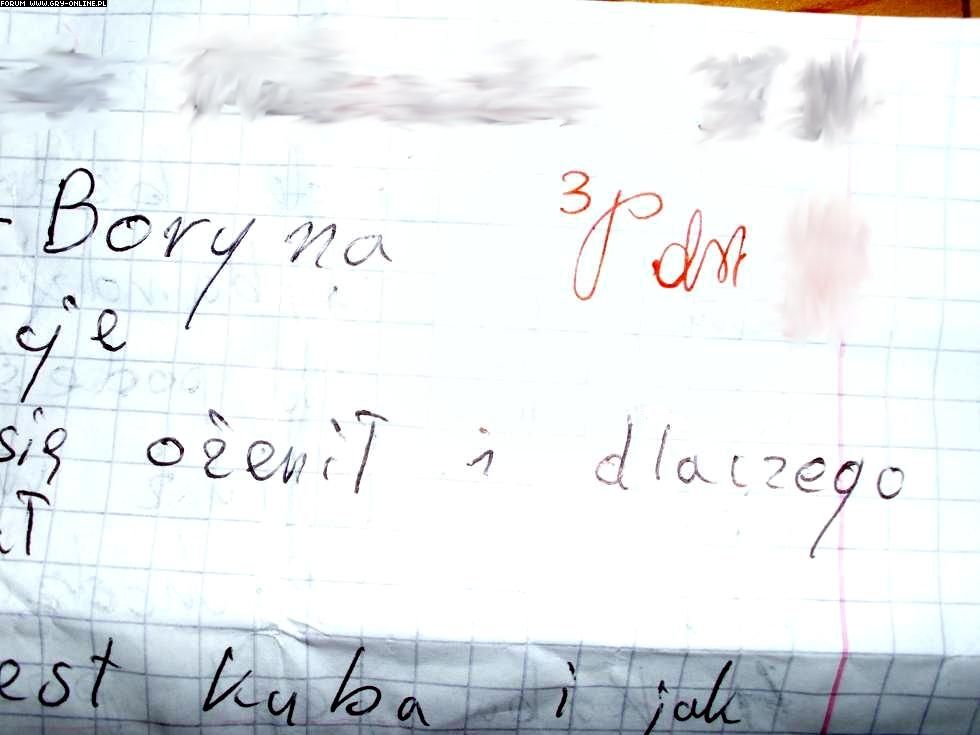 FORUM WWW.GRY-ONLINE.PL
- Boryna 3p dst
je
się ożenił i dlaczego
ił
est kuba i jak